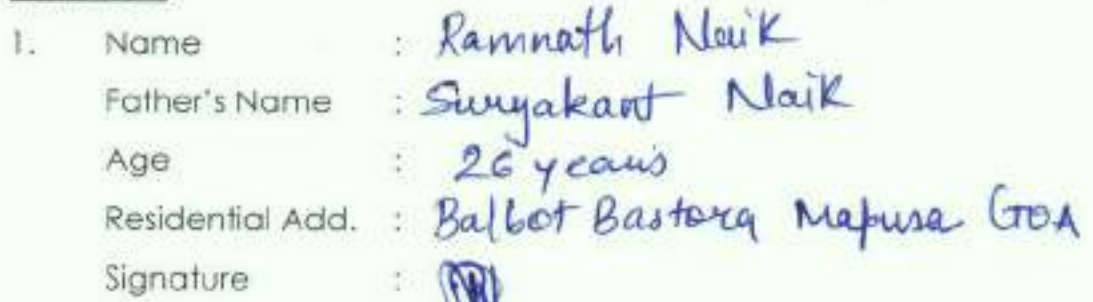 1. Name : Ramnath Naik
Father's Name : Suryakant Naik
Age : 26 years
Residential Add. : Balbot Bastora Mapusa GOA
Signature :